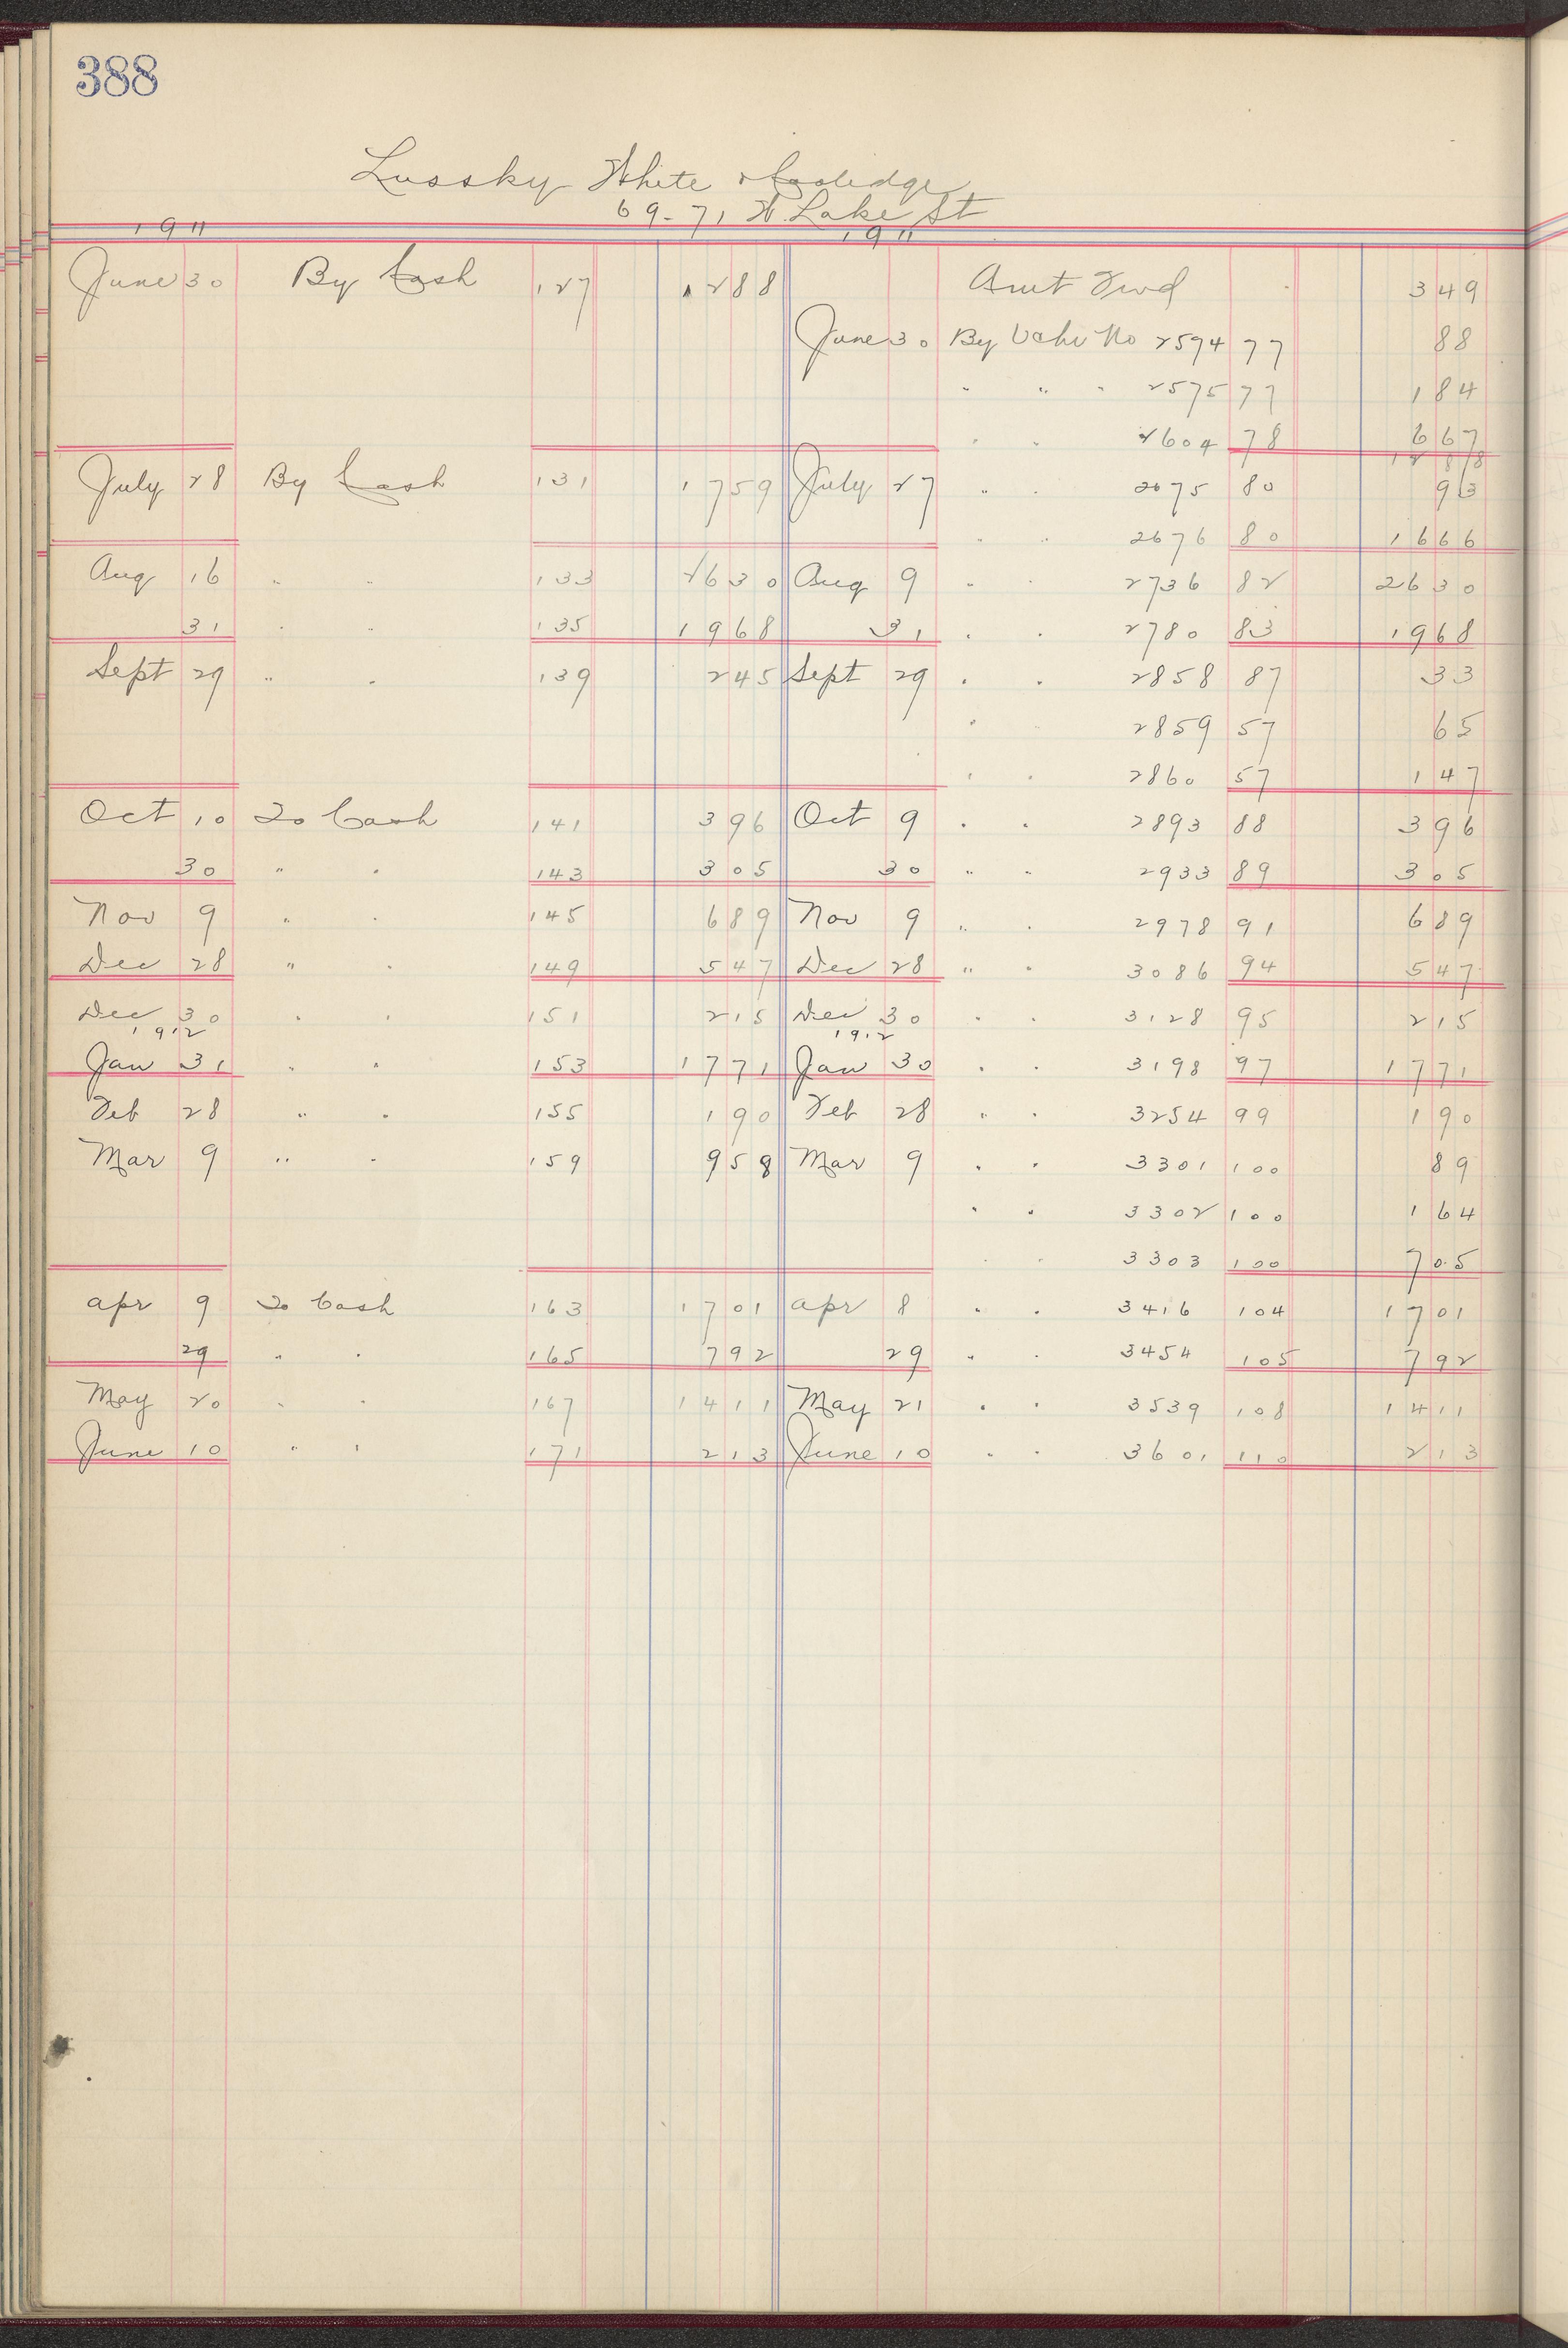 388
Lussky White & Coolidge
69-71 W. Lake St
1911 1911
June 30 By Cash 127 1288 Amt Fwd 349
June 30 By Vchr No 2574 77 88
" " " 2575 77 184
" " 2604 78 667
1288
July 28 By Cash 131 1759 July 27 " " 2675 80 93
" " 2676 80 1666
Aug 16 " " 133 2630 Aug 9 " " 2736 82 2630
31 " " 135 1968 31 " " 2780 83 1968
Sept 29 " " 139 245 Sept 29 " " 2858 87 33
" 2859 57 65
" " 2860 57 147
Oct 10 To Cash 141 396 Oct 9 " " 2893 88 396
30 " " 143 305 30 " " 2933 89 305
Nov 9 " " 145 689 Nov 9 " " 2978 91 689
Dec 28 " " 149 547 Dec 28 " " 3086 94 547
Dec 30 " " 151 215 Dec 30 " " 3128 95 215
1912 1912
Jan 31 " " 153 1771 Jan 30 " " 3198 97 1771
Feb 28 " " 155 190 Feb 28 " " 3254 99 190
Mar 9 " " 159 958 Mar 9 " " 3301 100 89
" " 3302 100 164
" " 3303 100 705
Apr 9 To Cash 163 1701 Apr 8 " " 3416 104 1701
29 " " 165 792 29 " " 3454 105 792
May 20 " " 167 1411 May 21 " " 3539 108 1411
June 10 " " 171 213 June 10 " " 3601 110 213